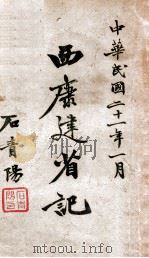 中華民國二十一年一月
西康建省記
石青陽
www.duxiu.com